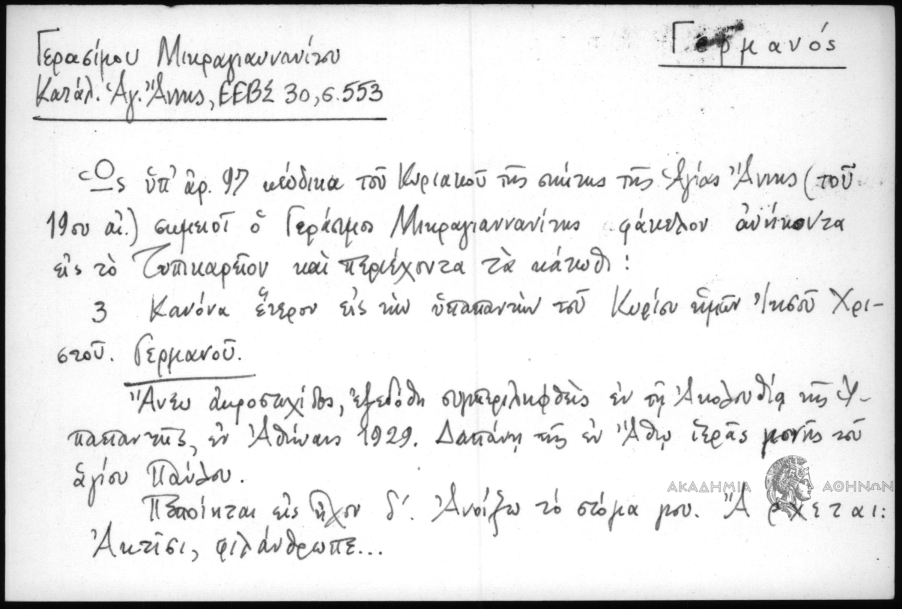 Γερμανός
Γερασίμου Μικραγιαννανίτου
Κατάλ. Ἁγ. Ἄννης, ΕΕΒΣ 30, σ. 553
Ὁς ὑπ' ἀρ. 97 κώδικα τοῦ Κυριακοῦ τῆς σκήτης τῆς Ἁγίας Ἄννης (τοῦ
19ου αἰ.) σημειοῖ ὁ Γεράσιμος Μικραγιαννανίτης φάκελον ἀνήκοντα
εἰς τὸ Τυπικαρεῖον καὶ περιέχοντα τὰ κάτωθι:
3 Κανόνα ἕτερον εἰς τὴν ὑπαπαντὴν τοῦ Κυρίου ἡμῶν Ἰησοῦ Χρι-
στοῦ. Γερμανοῦ.
Ἄνευ ἀκροστιχίδος, ἐξεδόθη συμπεριληφθεὶς ἐν τῇ Ἀκολουθίᾳ τῆς Ὑ-
παπαντῆς, ἐν Ἀθήναις 1929. Δαπάνῃ τῆς ἐν Ἄθῳ ἱερᾶς μονῆς τοῦ
ἁγίου Παύλου.
Πεποίηται εἰς ἦχον δ΄. Ἀνοίξω τὸ στόμα μου. Ἄρχεται:
Ἀκτῖσι, φιλάνθρωπε...
ΑΚΑΔΗΜΙΑ ΑΘΗΝΩΝ